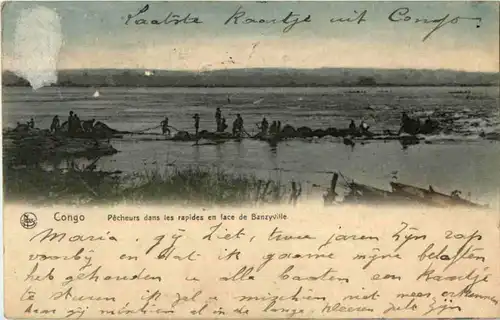 Laatste Kaartje uit Congo.
Congo Pêcheurs dans les rapides en face de Banzyville
Maria. gij ziet, twee jaren zijn rap
voorbij en dat ik gaarne mijne beloften
heb gehouden u alle booten een kaartje
te sturen ik zal u misschien niet meer erkennen
daar gij in de lange kleeren zult zijn